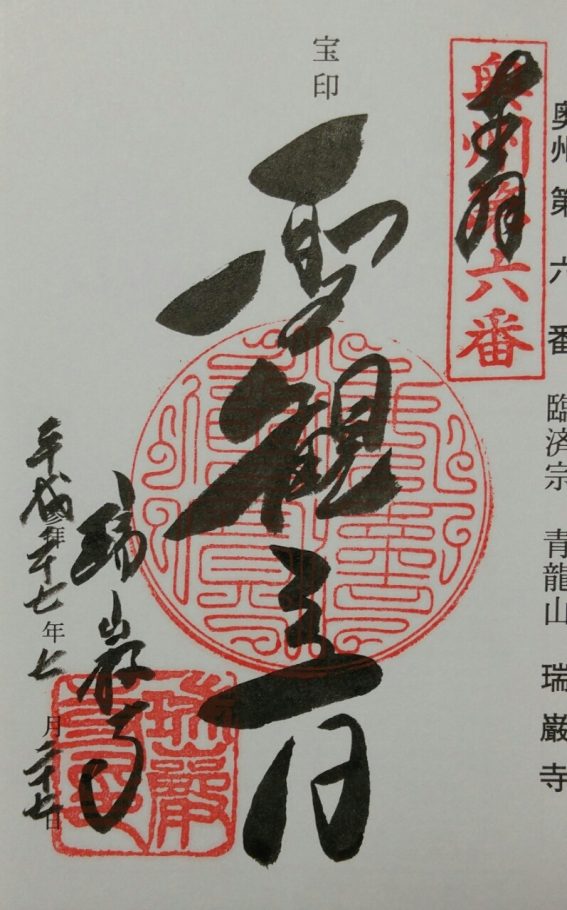 奥州第六番 臨済宗 青龍山 瑞巌寺
奉拝
奥州第六番
宝印
聖観世音
瑞巌寺
平成二十七年七月二十七日